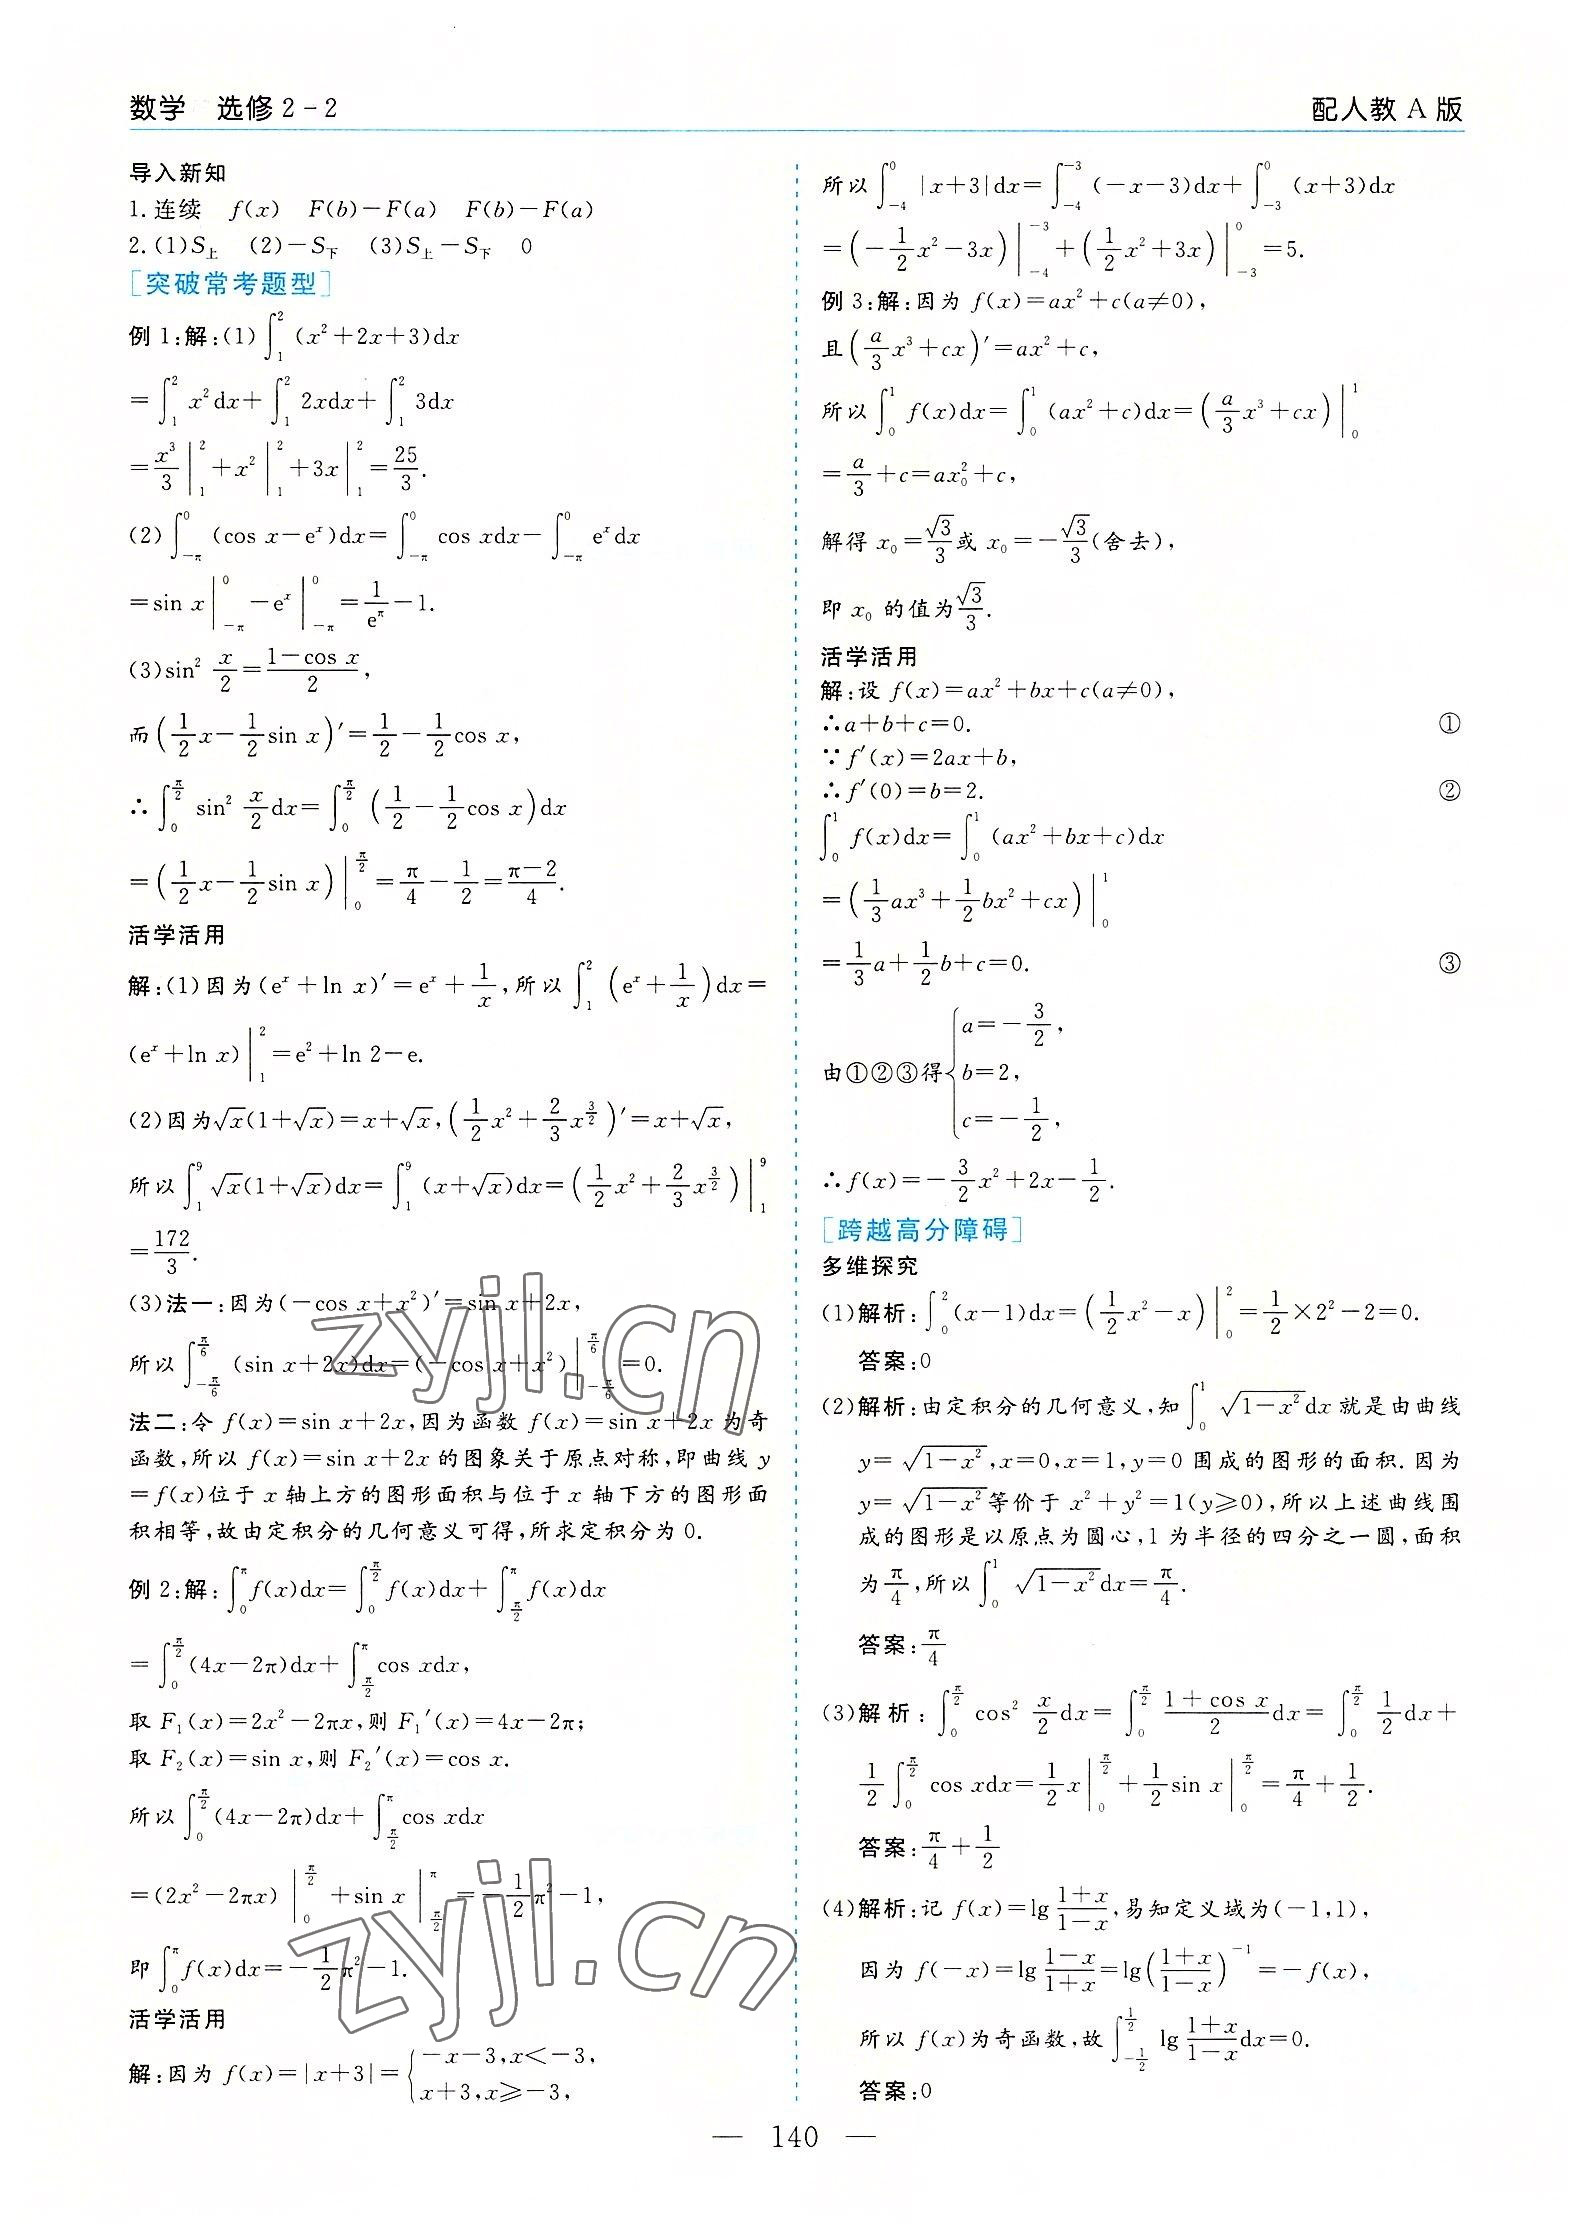 数学 选修2-2
配人教A版
导入新知
1.连续 f(x) F(b)－F(a) F(b)－F(a)
2.(1)S上 (2)－S下 (3)S上－S下 0
[突破常考题型]
例1:解:(1)∫₁²(x²+2x+3)dx
=∫₁²x²dx+∫₁²2xdx+∫₁²3dx
=x³/3|₁²+x²|₁²+3x|₁²=25/3.
(2)∫_{-π}^{0}(cos x－eˣ)dx=∫_{-π}^{0}cos xdx－∫_{-π}^{0}eˣdx
=sin x|_{-π}^{0}－eˣ|_{-π}^{0}=1/e^π－1.
(3)sin² x/2=(1－cos x)/2,
而(1/2 x－1/2 sin x)′=1/2－1/2 cos x,
∴∫_{0}^{π/2} sin² x/2 dx=∫_{0}^{π/2}(1/2－1/2 cos x)dx
=(1/2 x－1/2 sin x)|_{0}^{π/2}=π/4－1/2=(π－2)/4.
活学活用
解:(1)因为(eˣ+ln x)′=eˣ+1/x,所以∫₁²(eˣ+1/x)dx=
(eˣ+ln x)|₁²=e²+ln 2－e.
(2)因为√x(1+√x)=x+√x,(1/2 x²+2/3 x^{3/2})′=x+√x,
所以∫₁⁹√x(1+√x)dx=∫₁⁹(x+√x)dx=(1/2 x²+2/3 x^{3/2})|₁⁹
=172/3.
(3)法一:因为(－cos x+x²)′=sin x+2x,
所以∫_{-π/6}^{π/6}(sin x+2x)dx=(－cos x+x²)|_{-π/6}^{π/6}=0.
法二:令f(x)=sin x+2x,因为函数f(x)=sin x+2x为奇
函数,所以f(x)=sin x+2x的图象关于原点对称,即曲线y
=f(x)位于x轴上方的图形面积与位于x轴下方的图形面
积相等,故由定积分的几何意义可得,所求定积分为0.
例2:解:∫_{0}^{π}f(x)dx=∫_{0}^{π/2}f(x)dx+∫_{π/2}^{π}f(x)dx
=∫_{0}^{π/2}(4x－2π)dx+∫_{π/2}^{π}cos xdx,
取F₁(x)=2x²－2πx,则F₁′(x)=4x－2π;
取F₂(x)=sin x,则F₂′(x)=cos x.
所以∫_{0}^{π/2}(4x－2π)dx+∫_{π/2}^{π}cos xdx
=(2x²－2πx)|_{0}^{π/2}+sin x|_{π/2}^{π}=－1/2 π²－1,
即∫_{0}^{π}f(x)dx=－1/2 π²－1.
活学活用
解:因为f(x)=|x+3|={－x－3,x<－3,
x+3,x≥－3,
所以∫_{-4}^{0}|x+3|dx=∫_{-4}^{-3}(－x－3)dx+∫_{-3}^{0}(x+3)dx
=(－1/2 x²－3x)|_{-4}^{-3}+(1/2 x²+3x)|_{-3}^{0}=5.
例3:解:因为f(x)=ax²+c(a≠0),
且(a/3 x³+cx)′=ax²+c,
所以∫₀¹f(x)dx=∫₀¹(ax²+c)dx=(a/3 x³+cx)|₀¹
=a/3+c=ax₀²+c,
解得x₀=√3/3或x₀=－√3/3(舍去),
即x₀的值为√3/3.
活学活用
解:设f(x)=ax²+bx+c(a≠0),
∴a+b+c=0. ①
∵f′(x)=2ax+b,
∴f′(0)=b=2. ②
∫₀¹f(x)dx=∫₀¹(ax²+bx+c)dx
=(1/3 ax³+1/2 bx²+cx)|₀¹
=1/3 a+1/2 b+c=0. ③
由①②③得{a=－3/2,
b=2,
c=－1/2,
∴f(x)=－3/2 x²+2x－1/2.
[跨越高分障碍]
多维探究
(1)解析:∫₀²(x－1)dx=(1/2 x²－x)|₀²=1/2×2²－2=0.
答案:0
(2)解析:由定积分的几何意义,知∫₀¹√(1－x²)dx就是由曲线
y=√(1－x²),x=0,x=1,y=0围成的图形的面积.因为
y=√(1－x²)等价于x²+y²=1(y≥0),所以上述曲线围
成的图形是以原点为圆心,1为半径的四分之一圆,面积
为π/4,所以∫₀¹√(1－x²)dx=π/4.
答案:π/4
(3)解析:∫_{0}^{π/2}cos² x/2 dx=∫_{0}^{π/2}(1+cos x)/2 dx=∫_{0}^{π/2}1/2 dx+
1/2∫_{0}^{π/2}cos xdx=1/2 x|_{0}^{π/2}+1/2 sin x|_{0}^{π/2}=π/4+1/2.
答案:π/4+1/2
(4)解析:记f(x)=lg (1+x)/(1－x),易知定义域为(－1,1),
因为f(－x)=lg (1－x)/(1+x)=lg((1+x)/(1－x))^{-1}=－f(x),
所以f(x)为奇函数,故∫_{-1/2}^{1/2}lg (1+x)/(1－x)dx=0.
答案:0
— 140 —
zyjl.cn
zyjl.cn